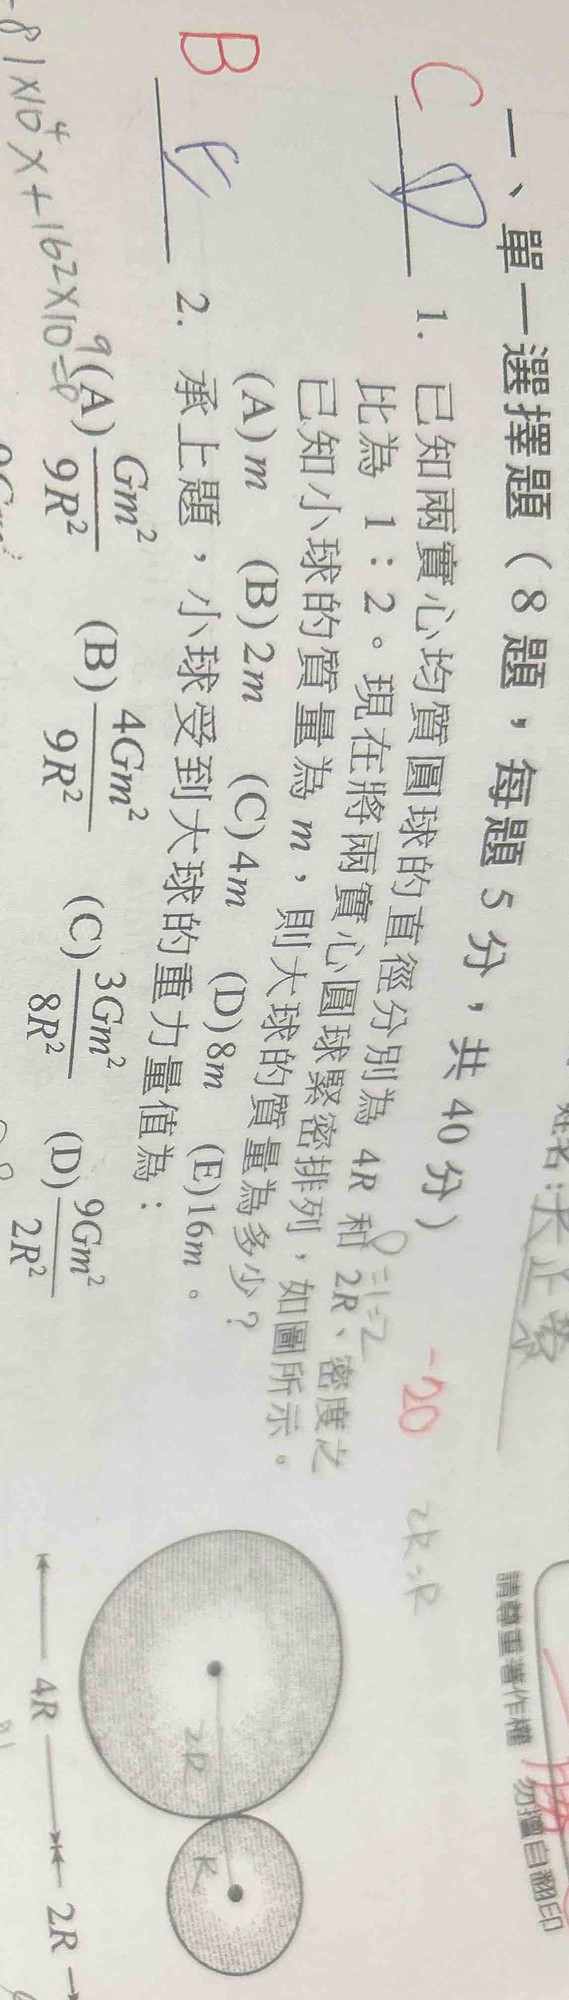 姓名:
一、單一選擇題(8題,每題5分,共40分)
-20
C
1. 已知兩實心均質圓球的直徑分別為 4R 和 2R、密度之
比為 1:2。現在將兩實心圓球緊密排列,如圖所示。
已知小球的質量為 m,則大球的質量為多少?
(A)m (B)2m (C)4m (D)8m (E)16m。
B
2. 承上題,小球受到大球的重力量值為:
(A) Gm²/9R² (B) 4Gm²/9R² (C) 3Gm²/8R² (D) 9Gm²/2R²
請尊重著作權 勿擅自翻印
2R:R
2R
R
4R
2R